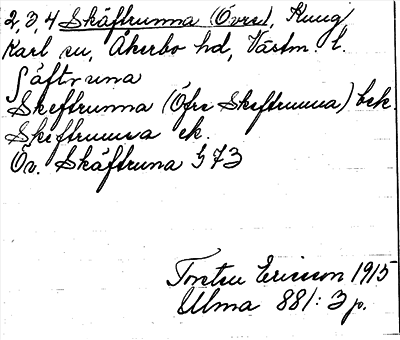 2,3,4 Skäftrunna (Övre), Kung
Karl sn, Åkerbo hd, Västm. l.
ʃäftruna
Skeftrunna (Öfre Skeftrunna) bek.
Skeftrunna ek.
Öv. Skäftruna § 73
Torsten Ericsson 1915
Ulma 881: 3 p.